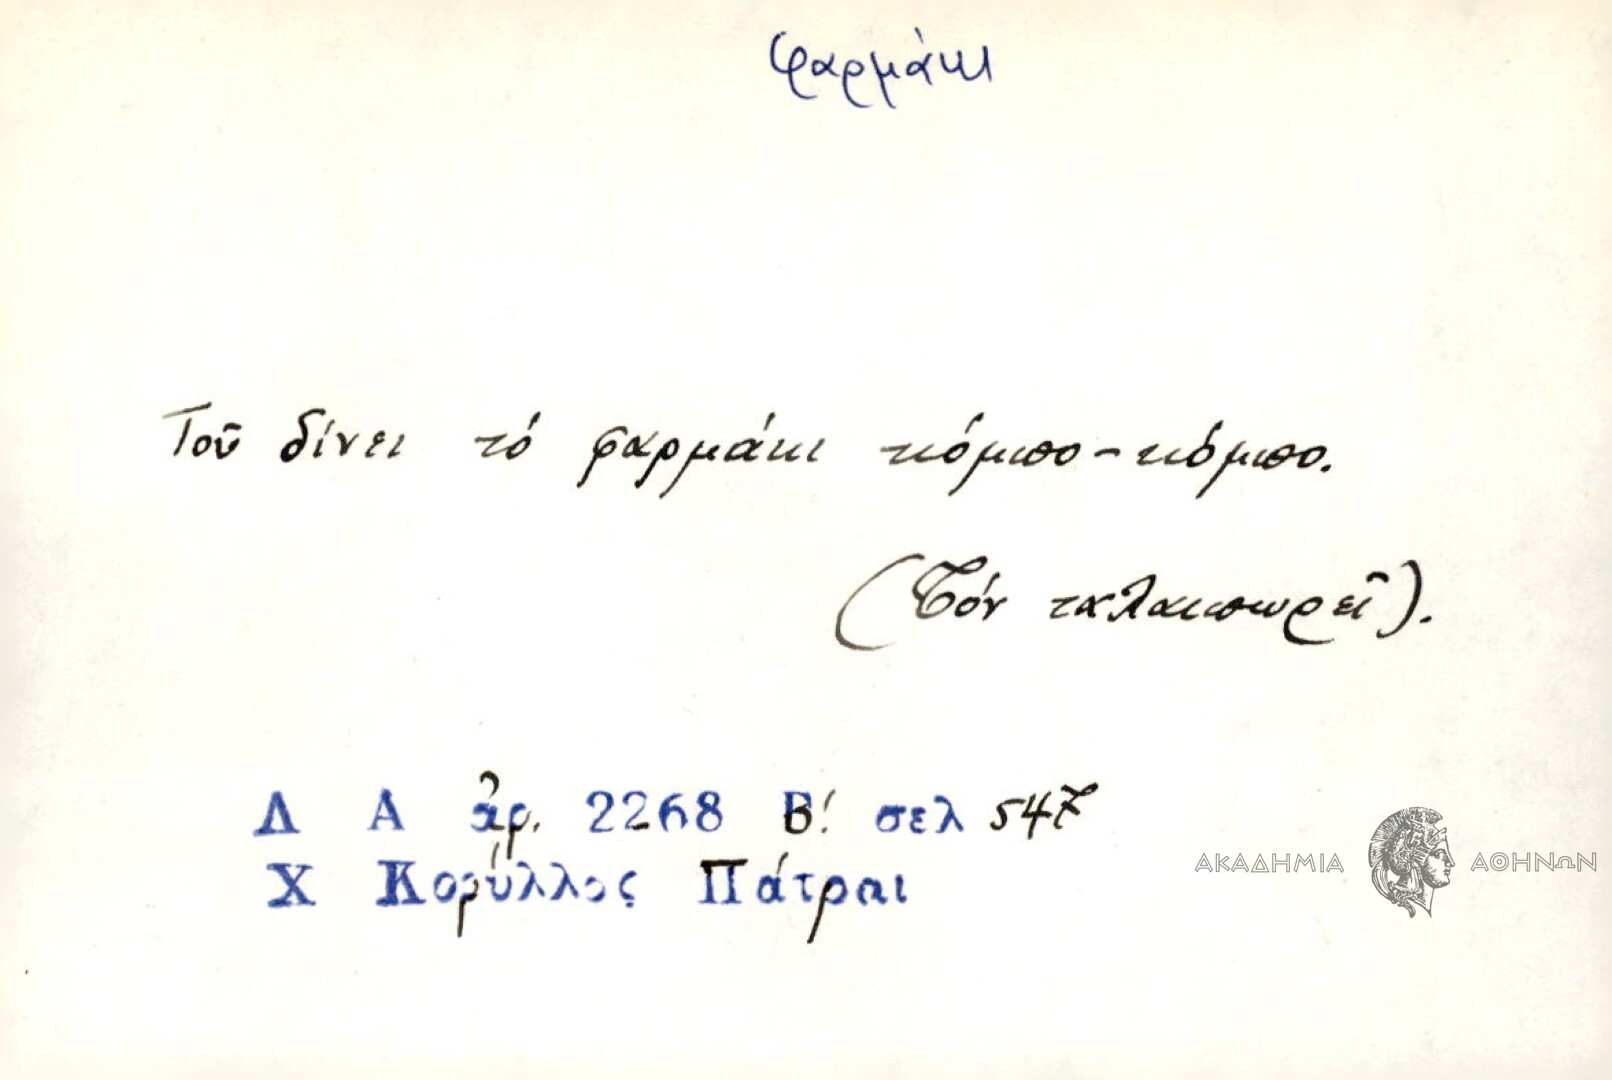 φαρμάκι
Τοῦ δίνει τό φαρμάκι κόμπο-κόμπο.
(Τόν ταλαιπωρεῖ).
Λ Α ἀρ. 2268 Β! σελ 547
Χ Κορύλλος Πάτραι
ΑΚΑΔΗΜΙΑ ΑΘΗΝΩΝ